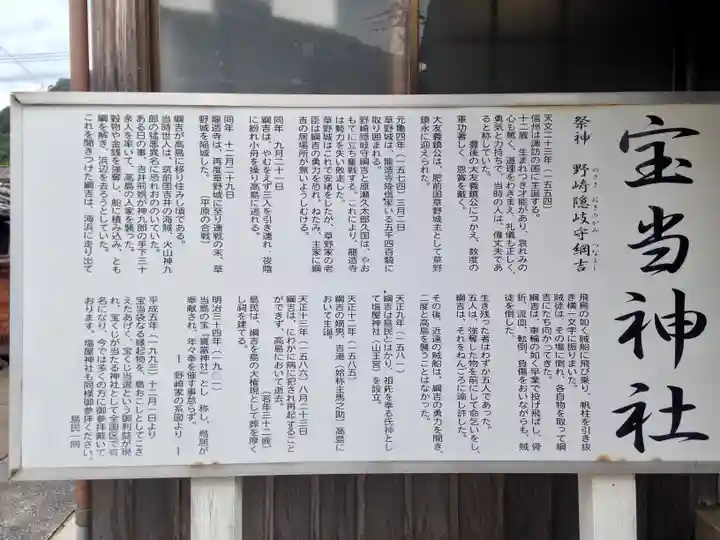 宝当神社
祭神　野崎隠岐守綱吉
のざき　おきのかみ　つなよし
天文二十三年（一五五四）
信州は諏訪の国に生誕する。
十二歳、生まれつき才能があり、哀れみの
心も篤く、道理をわきまえ、礼儀も正しく、
勇気と力持ちで、当時の人は、偉丈夫であ
ると称していた。
豊後の大友義鎮公につかえ、数度の
軍功著しく、恩賞を戴く。
大友義鎮公は、肥前国草野城主として草野
鎮永に迎えられた。
元亀四年（一五七四）三月二日
草野城は、龍造寺隆信率いる五千四百騎に
取り囲まれる。
野崎隠岐守綱吉と原瀬久太郎久国は、やお
もてに立ち奮戦する。これにより、龍造寺
は勢力を失い敗走した。
草野城はこれで安堵をしたが、草野家の老
臣は綱吉の勇力を恐れ、ねたみ、主家に綱
吉の居場所が無いようしむける。
同年　九月二十一日
綱吉は、やむをえず三人を引き連れ、夜陰
に紛れ小舟を操り高島に逃れる。
同年　十二月二十九日
龍造寺は、再度草野城に至り連戦の末、草
野城を陥城した。　（平原の合戦）
綱吉が高島に移り住みし頃である。
当時世人は、筑前国吉井の海賊、火山神九
郎の猛悪異名に恐れおののいていた。
ある日の事、吉井荊萌が神九郎の手下三十
余人を率いて、高島の人家を襲った。
穀物や金銭を強奪し、船に積み込み、とも
綱を解き、浜辺を去ろうとしていた。
これを聞きつけた綱吉は、海浜に走り出て
飛鳥の如く賊船に飛び乗り、帆柱を引き抜
き横一文字に振りまいた。
賊徒は、その場に倒れ、各自物を取って綱
吉に立ち向かってきた。
綱吉は、車輪の如く早業で投げ飛ばし、骨
折、流血、転倒、負傷をおいながらも、賊
徒を倒した。
生き残った者はわずか五人であった。
五人は、強奪した物を前にして命乞いをし、
綱吉は、それをねんごろに諭し許した。
その後、近遠の賊船は、綱吉の勇力を聞き、
二度と高島を襲うことはなかった。
天正九年（一五八一）
綱吉は島民とはかり、祖先を奉る氏神とし
て塩屋神社（山王宮）を設立。
天正十二年（一五八五）
綱吉の嫡男、吉遠（始称主馬之助）高島に
おいて生誕。
天正十三年（一五八六）八月二十三日
綱吉は、にわかに病に犯され再起すること
ができず、高島において逝去。
（若年三十二歳）
島民は、綱吉を島の大権現として葬を厚く
し祠を建てる。
明治三十四年（一九〇一）
当島の宝『寳當神社』とし　称し、鳥居が
奉献され、年々奉を催す事怠らず。
― 野崎家の系図より ―
平成五年（一九九三）十二月一日より
宝当袋なる縁起物を、島おこしとしてこさ
えたあげく、宝くじ当選という御利益が現
れ、宝くじが当たる神社として全国区で有
名になり、今では多くの方に御参拝戴いて
おります。塩屋神社も同様御参拝ください。
島民一同